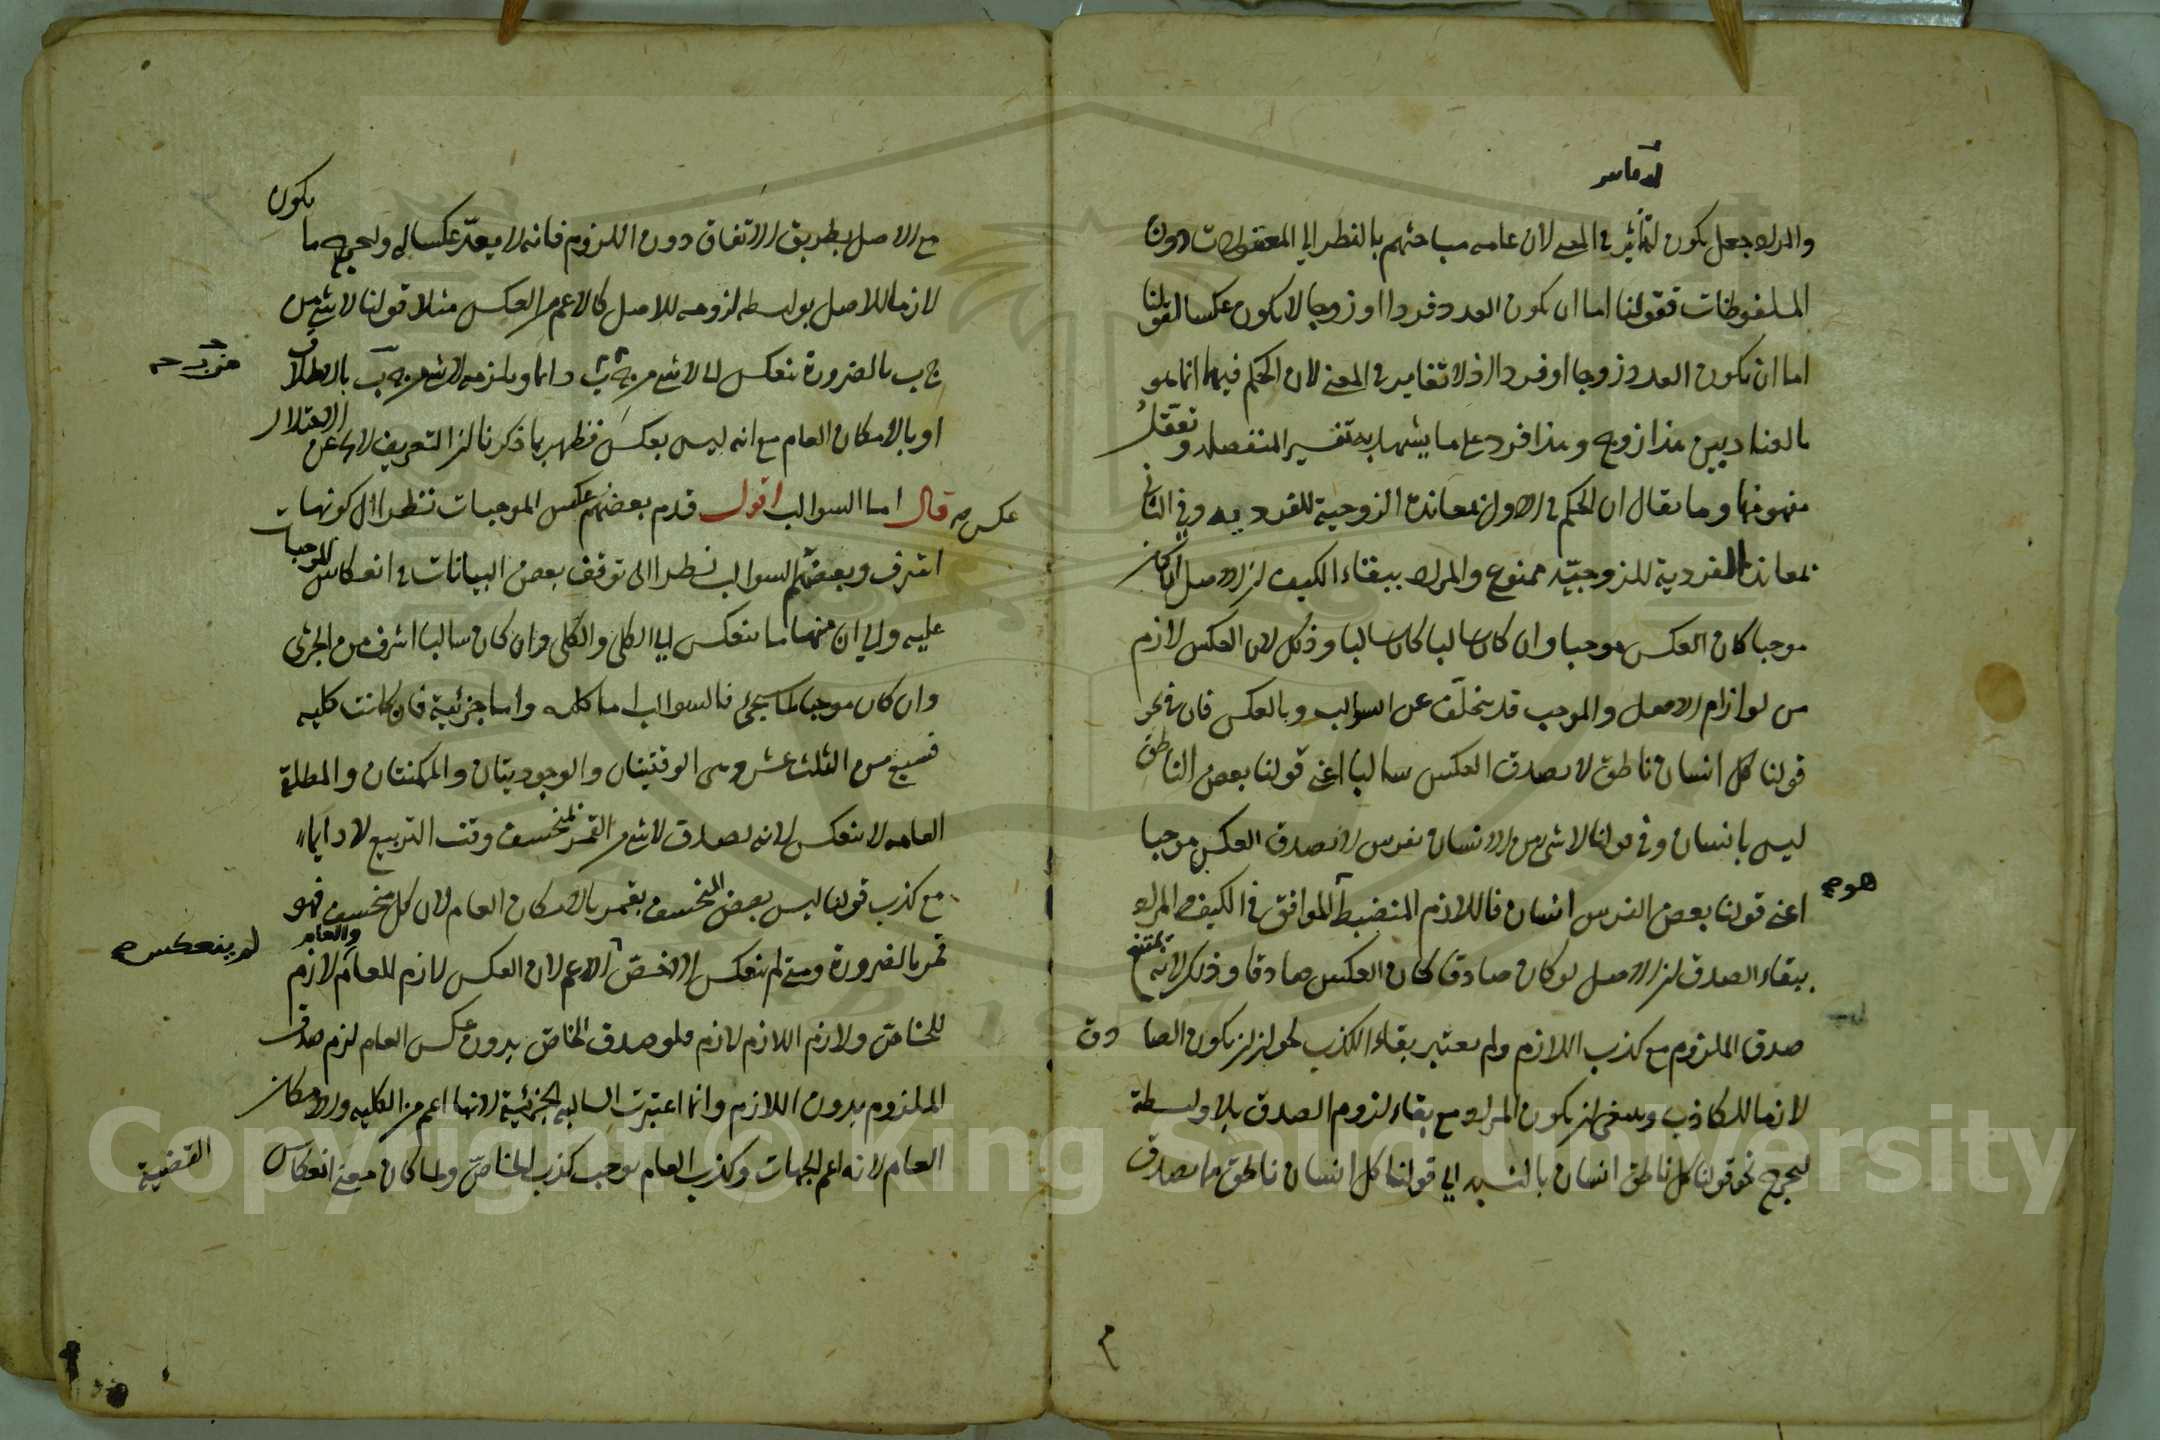 والمراد جعل يكون لتأثير في المعنى لان عامه مباحثهم بالنظر الى المعقولات دون
الملفوظات فقولنا اما ان يكون العدد فردا او زوجا لا يكون عكسا لقولنا
اما ان يكون العدد زوجا او فردا اذ لا تغاير في المعنى لان الحكم فيهما انما هو
بالعناد بين هذا زوج وهذا فرد على ما يشهد به تفسير المنفصله وتعقل
مفهومها وما يقال ان الحكم في الاول بمعاندة الزوجية للفردية وفي الثاني
بمعاندة الفردية للزوجيّة ممنوع والمراد ببقاء الكيف ان الاصل ان كان
موجبا كان العكس موجبا وان كان سالبا كان سالبا وذلك لان العكس لازم
من لوازم الاصل والموجب قد يتخلّف عن السوالب وبالعكس فان في نحو
قولنا كل انسان ناطق لا يصدق العكس سالبا اعنى قولنا بعض الناطق
ليس بانسان وفي قولنا لا شئ من الانسان بفرس لا يصدق العكس موجبا
اعنى قولنا بعض الفرس انسان فاللازم المنضبط الموافق في الكيف المراد
هو
ببقاء الصدق ان الاصل لو كان صادقا كان العكس صادقا وذلك لانه يمتنع
صدق الملزوم مع كذب اللازم ولم يعتبر بقاء الكذب لجواز ان يكون الصادق
لازما للكاذب وينبغى ان يكون المراد مع بقاء لزوم الصدق بلا واسطة
ليخرج نحو قولنا كل ناطق انسان بالنسبه الى قولنا كل انسان ناطق مما يصدق
مع الاصل بطريق الاتفاق دون اللزوم فانه لا يعدّ عكسا له وليخرج ما يكون
لازما للاصل بواسطه لزومه للاصل كالاعم من العكس مثلا قولنا لا شئ من
ج ب بالضرورة ينعكس الى لا شئ من ب ج دائما ويلزمه لا شئ من ب ج بالاطلاق
او بالامكان العام مع انه ليس بعكس فظهر بما ذكرنا ان التعريف لا عن الاختلال
قال اما السوالب اقول قدم بعضهم عكس الموجبات نظرا الى كونها
عكس
اشرف وبعضهم السوالب نظرا الى توقف بعض البيانات في انعكاس الموجبات
عليه والى ان منها ما ينعكس الى الكلى والكلى وان كان سالبا اشرف من الجزئى
وان كان موجبا كما سيجئ فالسوالب اما كليه واما جزئية فان كانت كليه
فسبع من الثلث عشر وهى الوقتيتان والوجوديتان والممكنتان والمطلقة
العامه لا ينعكس لانه يصدق لا شئ من القمر بمنخسف وقت التربيع لا دايما
مع كذب قولنا ليس بعض المنخسف بقمر بالامكان العام لان كل منخسف فهو
قمر بالضرورة ومتى لم ينعكس الاخصّ لم ينعكس الاعم لان العكس لازم للعام والعام لازم
للخاصّ ولازم اللازم لازم فلو صدق الخاصّ بدون عكس العام لزم صدق
الملزوم بدون اللازم وانما اعتبرت السالبه الجزئية لانها اعم من الكليه والامكان
العام لانه اعم الجهات وكذب العام يوجب كذب الخاصّ ولما كان معنى انعكاس
القضية